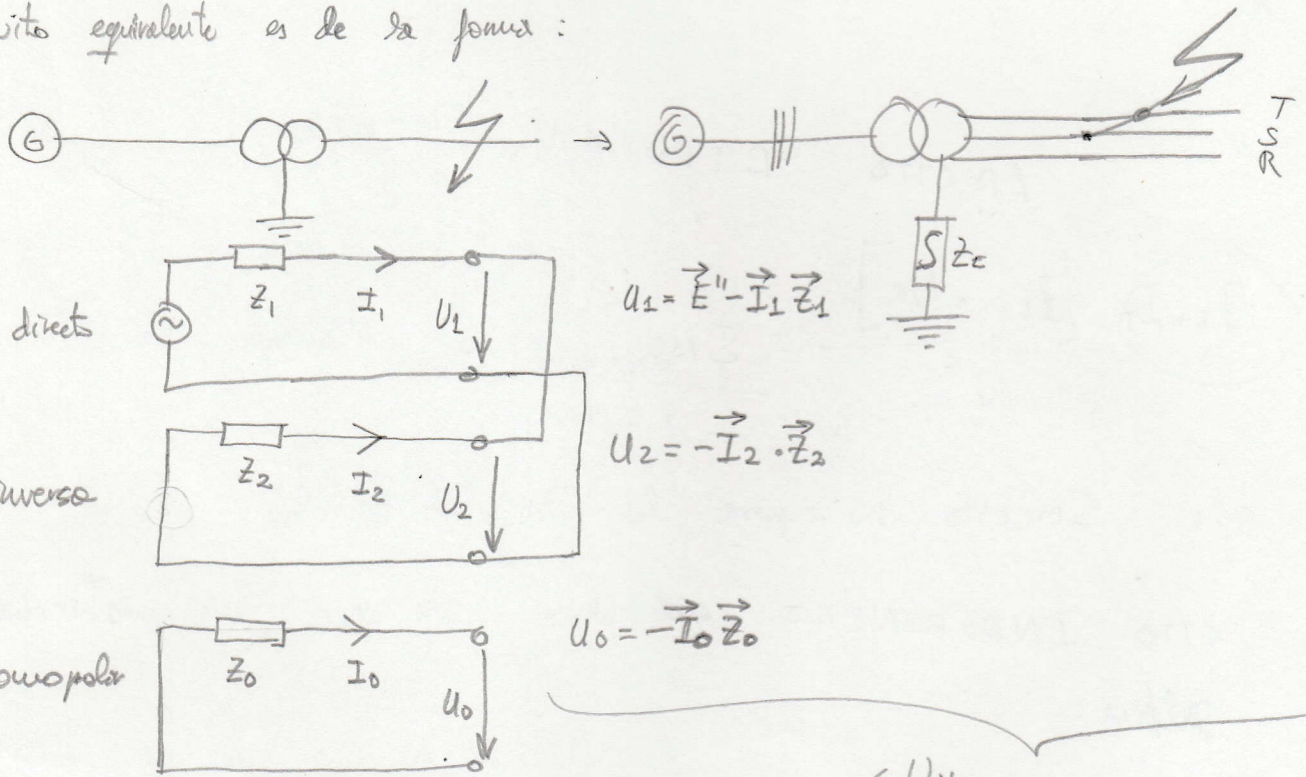 uito equivalente es de la forma:
G → G T
S
R
Z_E
directo Z₁ I₁ U₁ U₁ = E⃗'' - I⃗₁ Z⃗₁
inverso Z₂ I₂ U₂ U₂ = -I⃗₂ · Z⃗₂
omopolar Z₀ I₀ U₀ U₀ = -I⃗₀ Z⃗₀